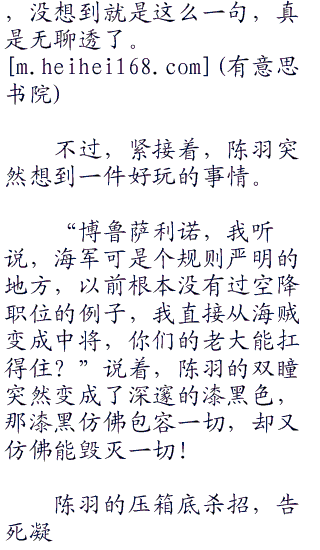 ，没想到就是这么一句，真
是无聊透了。
[m.heihei168.com](有意思
书院)
不过，紧接着，陈羽突
然想到一件好玩的事情。
“博鲁萨利诺，我听
说，海军可是个规则严明的
地方，以前根本没有过空降
职位的例子，我直接从海贼
变成中将，你们的老大能扛
得住？”说着，陈羽的双瞳
突然变成了深邃的漆黑色，
那漆黑仿佛包容一切，却又
仿佛能毁灭一切！
陈羽的压箱底杀招，告
死凝